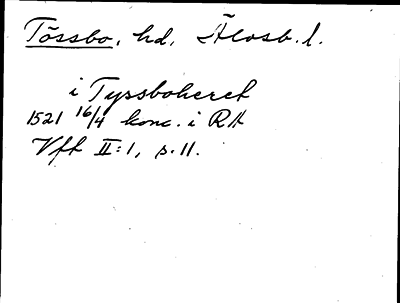 Tössbo, hd, Älvsb. l.
i Tyssboheret
1521 16/4 konc. i RA
Vft II:1, s. 11.